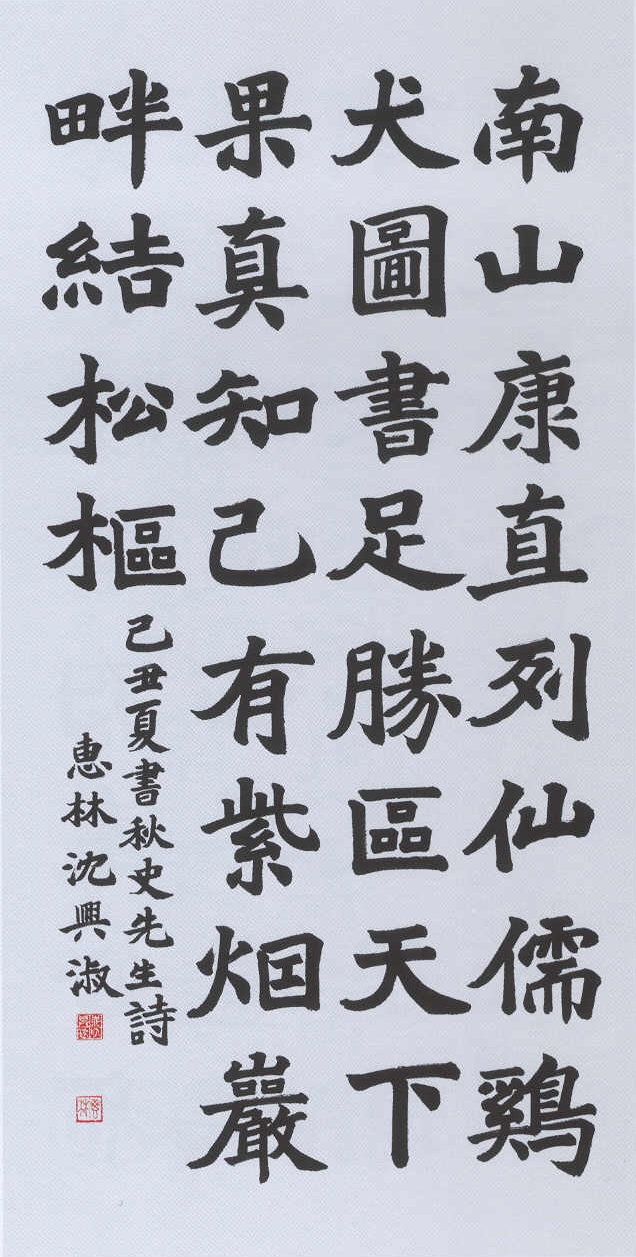 南山康直列仙儒鷄
犬圖書足勝區天下
果真知己有紫烟巖
畔結松樞
己丑夏書秋史先生詩
惠林沈興淑